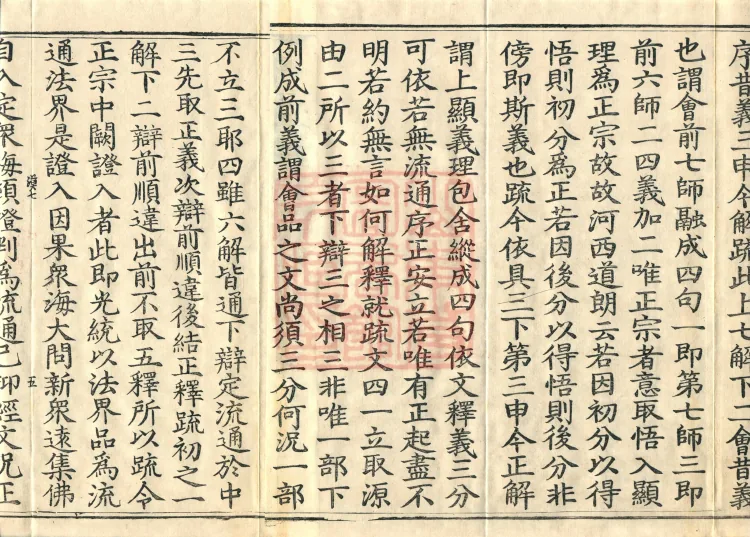 序昔義三申今解疏此上七解下二會昔義
也謂會前七師融成四句一即第七師三即
前六師二四義加二唯正宗者意取悟入顯
理爲正宗故故河西道朗云若因初分以得
悟則初分爲正若因後分以得悟則後分非
傍即斯義也疏今依具三下第三申今正解
謂上顯義理包含縱成四句依文釋義三分
可依若無流通序正安立若唯有正起盡不
明若約無言如何解釋就疏文四一立取源
由二所以三者下辯三之相三非唯一部下
例成前義謂會品之文尚須三分何況一部
不立三耶四雖六解皆通下辯定流通於中
三先取正義次辯前順違後結正釋疏初之一
解下二辯前順違出前不取五釋所以疏令
正宗中闕證入者此即光統以法界品爲流
通法界是證入因果衆海大問新衆遠集佛
五
自入定衆海頓證判爲流通已抑經文況正